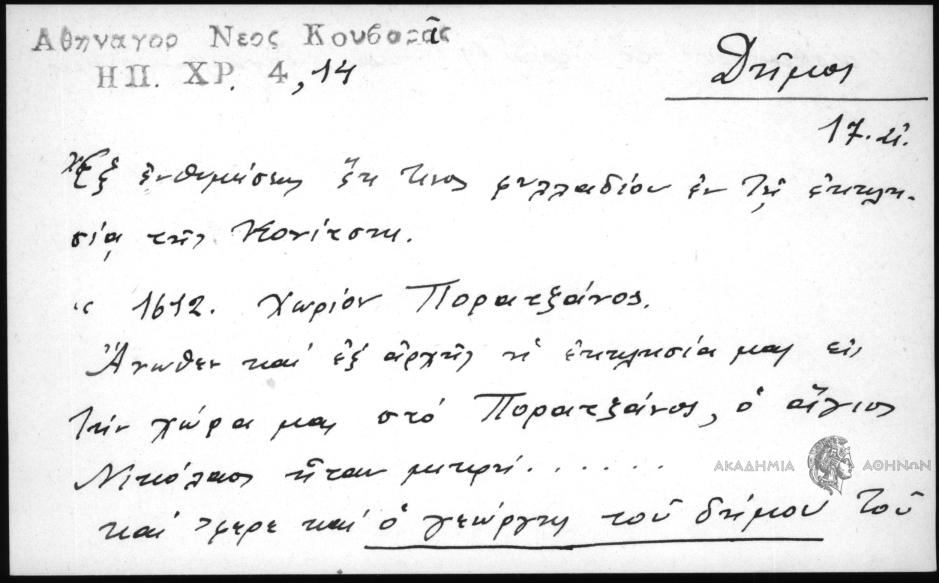 Αθηναγορ Νεος Κουβαρᾶς
ΗΠ. ΧΡ. 4, 14
Δῆμος
17. αἰ.
Ἐξ ἐνθυμήσεως ἔκ τινος φυλλαδίου ἐν τῇ ἐκκλη-
σίᾳ τῆς Κονίτσης.
" 1612. Χωρίον Πορατζάνος.
Ἄνωθεν καί ἐξ ἀρχῆς ἡ ἐκκλησία μας εἰς
τήν χώρα μας στό Πορατζάνος, ὁ ἅγιος
Νικόλαος ἦταν μικρή......
καί ἤφερε καί ὁ γεώργης τοῦ δήμου τοῦ
ΑΚΑΔΗΜΙΑ ΑΘΗΝΩΝ